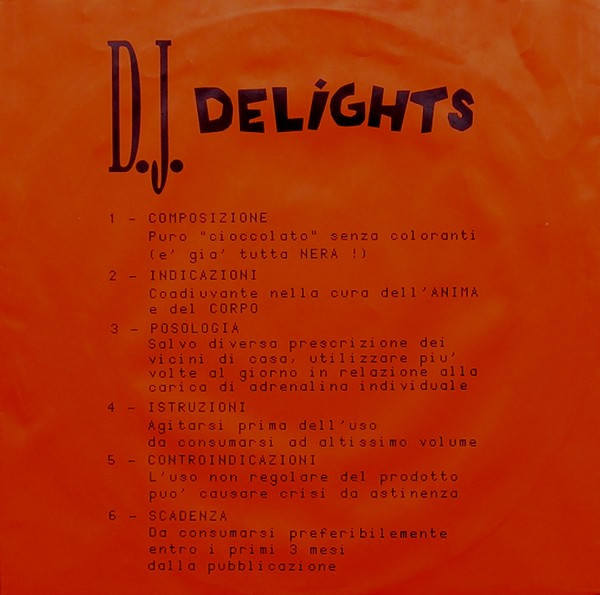 D.J. DELiGHTS
1 - COMPOSIZIONE
Puro "cioccolato" senza coloranti
(e' gia' tutta NERA !)
2 - INDICAZIONI
Coadiuvante nella cura dell'ANIMA
e del CORPO
3 - POSOLOGIA
Salvo diversa prescrizione dei
vicini di casa, utilizzare piu'
volte al giorno in relazione alla
carica di adrenalina individuale
4 - ISTRUZIONI
Agitarsi prima dell'uso
da consumarsi ad altissimo volume
5 - CONTROINDICAZIONI
L'uso non regolare del prodotto
puo' causare crisi da astinenza
6 - SCADENZA
Da consumarsi preferibilmente
entro i primi 3 mesi
dalla pubblicazione